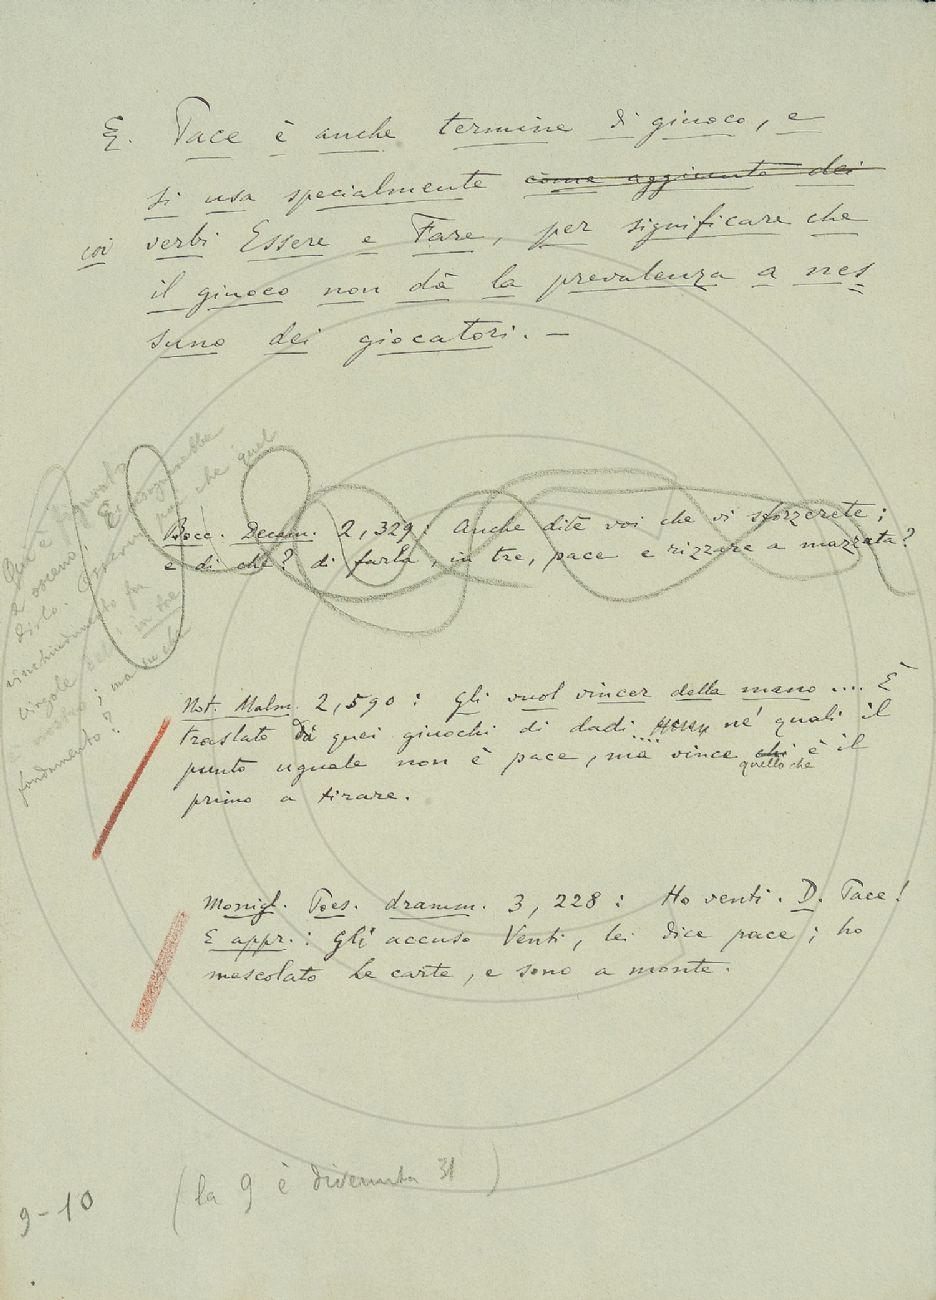 E. Pace è anche termine di giuoco, e
si usa specialmente come aggiunto dei
coi verbi Essere e Fare, per significare che
il giuoco non dà la prevalenza a nes
suno dei giocatori. —
Qui è figurato
e osceno!
Dirlo. E
virgole
in tre
; ma su che
fondamento?
Bocc. Decam. 2, 329: Anche dite voi che vi sforzerete;
e di che? di farla, in tre, pace e rizzare a mazzata?
Not. Malm. 2, 590: Gli vuol vincer della mano .... È
traslato da quei giuochi di dadi .... ne' quali il
punto uguale non è pace, ma vince chi quello che è il
primo a tirare.
Monigl. Poes. dramm. 3, 228: Ho venti. D. Pace!
E appr.: Gli accuso Venti, lei dice pace; ho
mescolato le carte, e sono a monte.
9-10 (la 9 è divenuta 31)